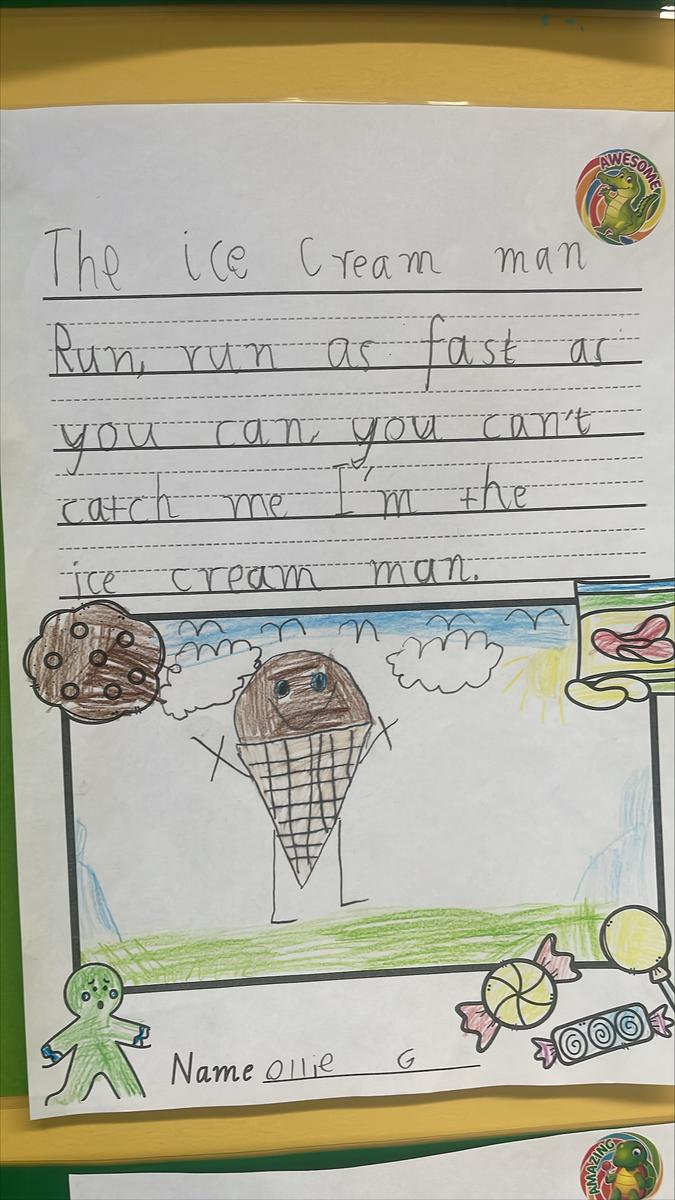 AWESOME
The ice cream man
Run, run as fast as
you can, you can't
catch me I'm the
ice cream man.
Name Ollie G
AMAZING